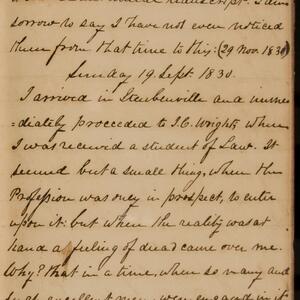 sorrow to say I have not even noticed
them from that time to this: (29 Nov. 1830)
Sunday 19. Sept. 1830.
I arrived in Steubenville and imme
=diately proceeded to J.C. Wright's where
I was received a student of Law. It
seemed but a small thing, when the
Profession was only in prospect, to enter
upon it: but when the reality was at
hand a feeling of dread came over me.
Why? that in a time, when so many and